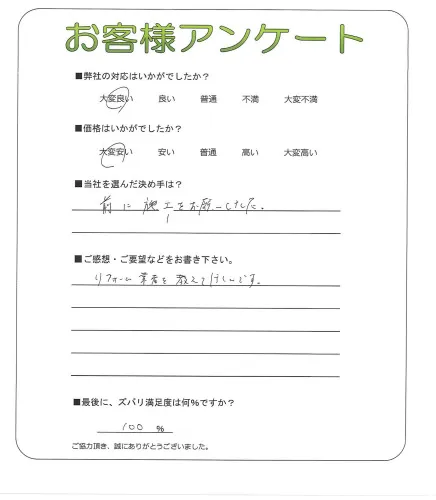 お客様アンケート
■弊社の対応はいかがでしたか？
大変良い 良い 普通 不満 大変不満
■価格はいかがでしたか？
大変安い 安い 普通 高い 大変高い
■当社を選んだ決め手は？
前に施工をお願いしました。
■ご感想・ご要望などをお書き下さい。
リフォーム業者を教えて
■最後に、ズバリ満足度は何％ですか？
100 ％
ご協力頂き、誠にありがとうございました。